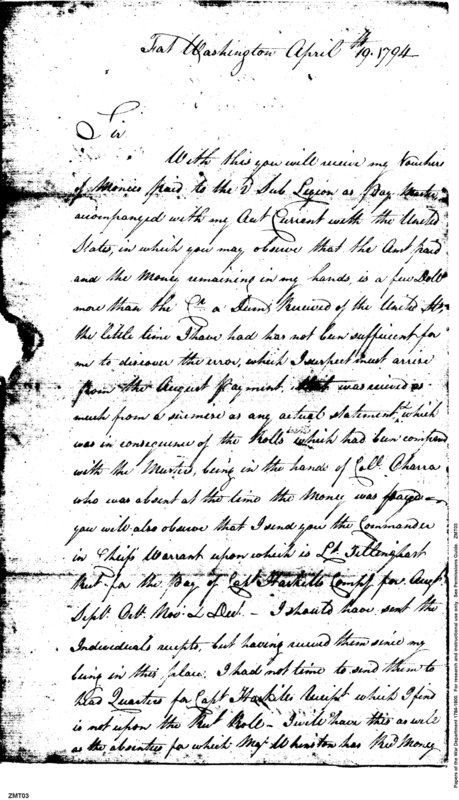 Fort Washington April 19th. 1794
Sir
With this you will receive my Vouchers
of Monies paid to the 2d Sub Legion as Pay Master
accompanyed with my Act Current with the United
States, in which you may observe that the Amt paid
and the Money remaining in my hands, is a few Doll
more than the Cr. a Received of the United Sts,
the little time I have had has not been sufficient for
me to discover the error, which I suspect must arise
from the August Payment, was received as
much from a as any actual Statement, which
was in consequence of the Rolls which had been compared
with the Muster, being in the hands of Coll. Oharra
who was absent at the time the Money was paid
you will also observe that I send you the Commander
in Chiefs Warrant upon which is Lt. Tillinghast
Rect. for the Pay of Capt Haskells Compy for Augt
Sept. Octr. Nov. & Decr. - I should have sent the
Individuals recipts, but having received them since my
being in this place, I had not time to send them to
Head Quarters for Capt Haskells Recipt which I find
is not upon the Rect Roll - I will have this as well
as the absentees for which Majr Whinston has Recd Money
ZMT03
Papers of the War Department 1784-1800. For research and instructional use only. See Permissions Guide. ZMT03